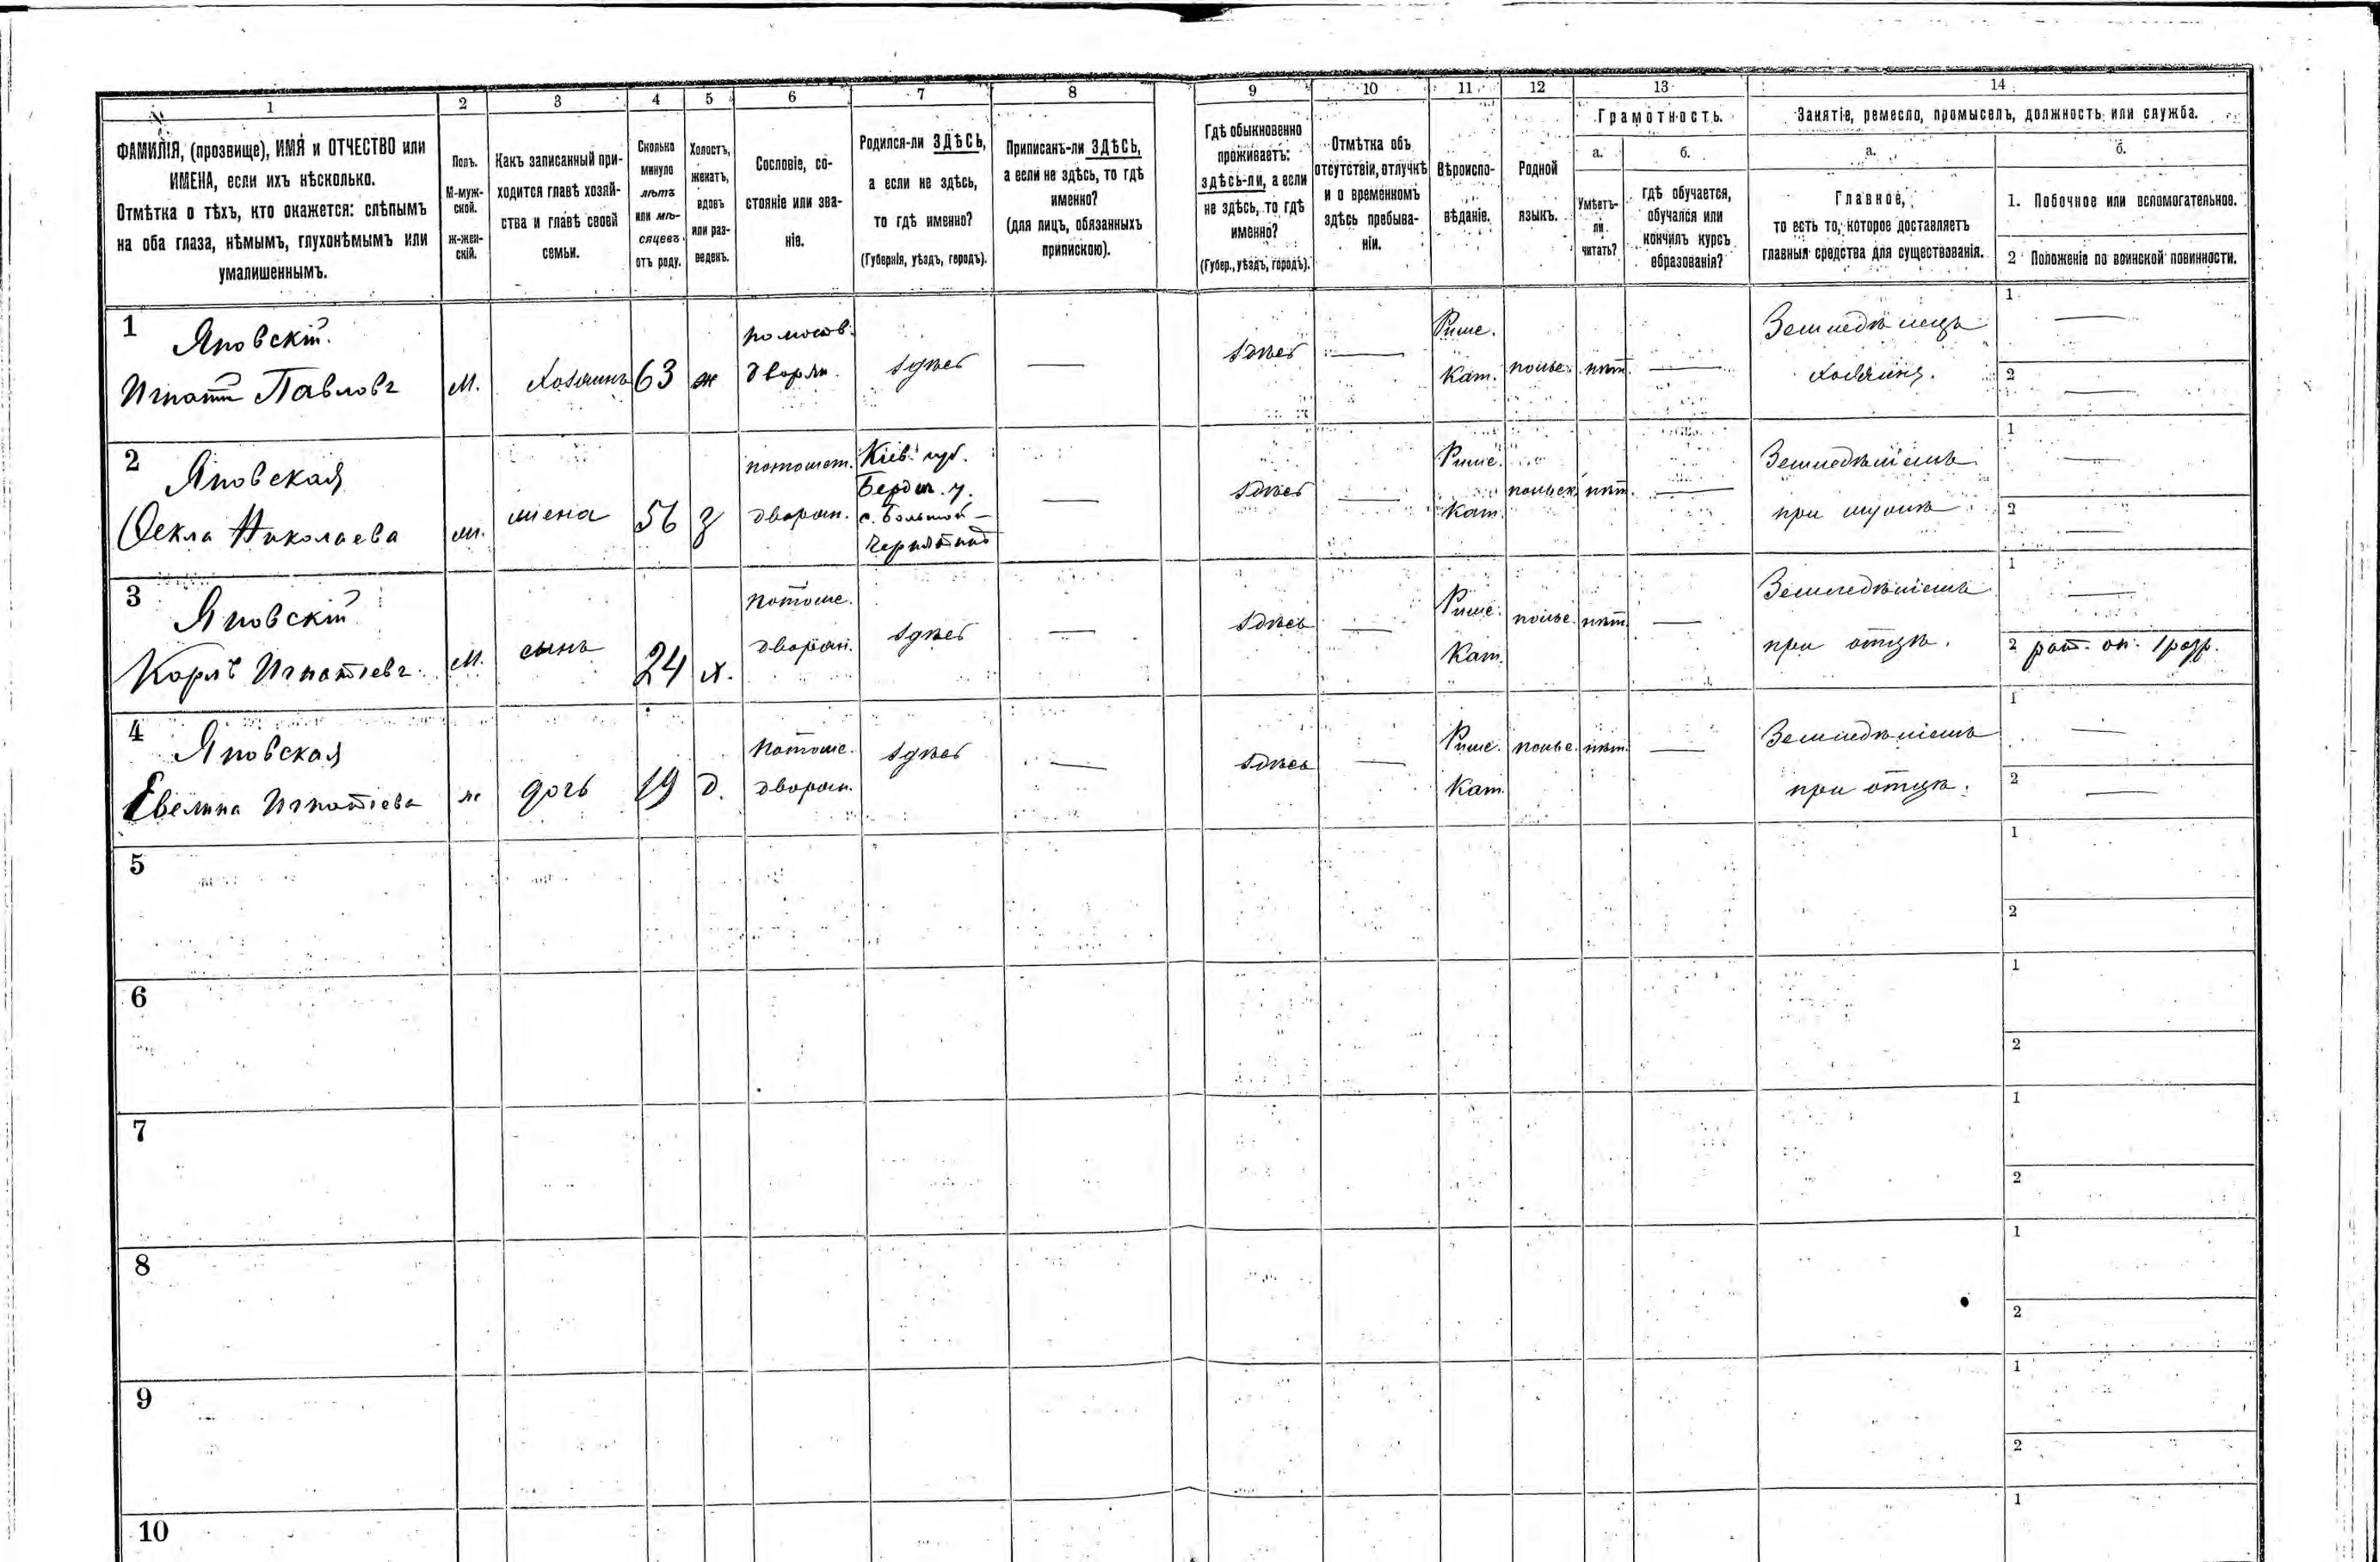 1
2
3
4
5
6
7
8
9
10
11
12
13
14
ФАМИЛІЯ, (прозвище), ИМЯ и ОТЧЕСТВО или
ИМЕНА, если ихъ нѣсколько.
Отмѣтка о тѣхъ, кто окажется: слѣпымъ
на оба глаза, нѣмымъ, глухонѣмымъ или
умалишеннымъ.
Полъ.
М-муж-
ской.
ж-жен-
скій.
Какъ записанный при-
ходится главѣ хозяй-
ства и главѣ своей
семьи.
Сколько
минуло
лѣтъ
или мѣ-
сяцевъ
отъ роду.
Холостъ,
женатъ,
вдовъ
или раз-
веденъ.
Сословіе, со-
стояніе или зва-
ніе.
Родился-ли ЗДѢСЬ,
а если не здѣсь,
то гдѣ именно?
(Губернія, уѣздъ, городъ).
Приписанъ-ли ЗДѢСЬ,
а если не здѣсь, то гдѣ
именно?
(для лицъ, обязанныхъ
припискою).
Гдѣ обыкновенно
проживаетъ:
здѣсь-ли, а если
не здѣсь, то гдѣ
именно?
(Губер., уѣздъ, городъ).
Отмѣтка объ
отсутствіи, отлучкѣ
и о временномъ
здѣсь пребыва-
ніи.
Вѣроиспо-
вѣданіе.
Родной
языкъ.
Грамотность.
а.
б.
Умѣетъ-
ли
читать?
гдѣ обучается,
обучался или
кончилъ курсъ
образованія?
Занятіе, ремесло, промыселъ, должность или служба.
а.
б.
Главное,
то есть то, которое доставляетъ
главныя средства для существованія.
1. Побочное или вспомогательное.
2 Положеніе по воинской повинности.
1
Яновскій
Игнатій Павловъ
М.
хозяинъ
63
ж
потомств.
дворян.
здѣсь
—
здѣсь
—
Римс.
Кат.
польс.
нѣт.
—
Земледѣлецъ
хозяинъ.
1
—
2
—
2
Яновская
Ѳекла Николаева
ж.
жена
56
з
потомст.
дворян.
Кіев. губ.
Бердич. у.
с. Большой —
Чернятинъ
—
здѣсь
—
Римс.
Кат.
польск.
нѣт.
—
Земледѣліемъ
при мужѣ
1
—
2
—
3
Яновскій
Карлъ Игнатіевъ
М.
сынъ
24
х.
потомс.
дворян.
здѣсь
—
здѣсь
—
Римс.
Кат.
польс.
нѣт.
—
Земледѣліемъ
при отцѣ.
1
—
2 рат. оп. 1 разр.
4
Яновская
Евелина Игнатіева
ж
дочь
19
д.
потомс.
дворян.
здѣсь
—
здѣсь
—
Римс.
Кат.
польс.
нѣт.
—
Земледѣліемъ
при отцѣ.
1
—
2
—
5
1
2
6
1
2
7
1
2
8
1
2
9
1
2
10
1